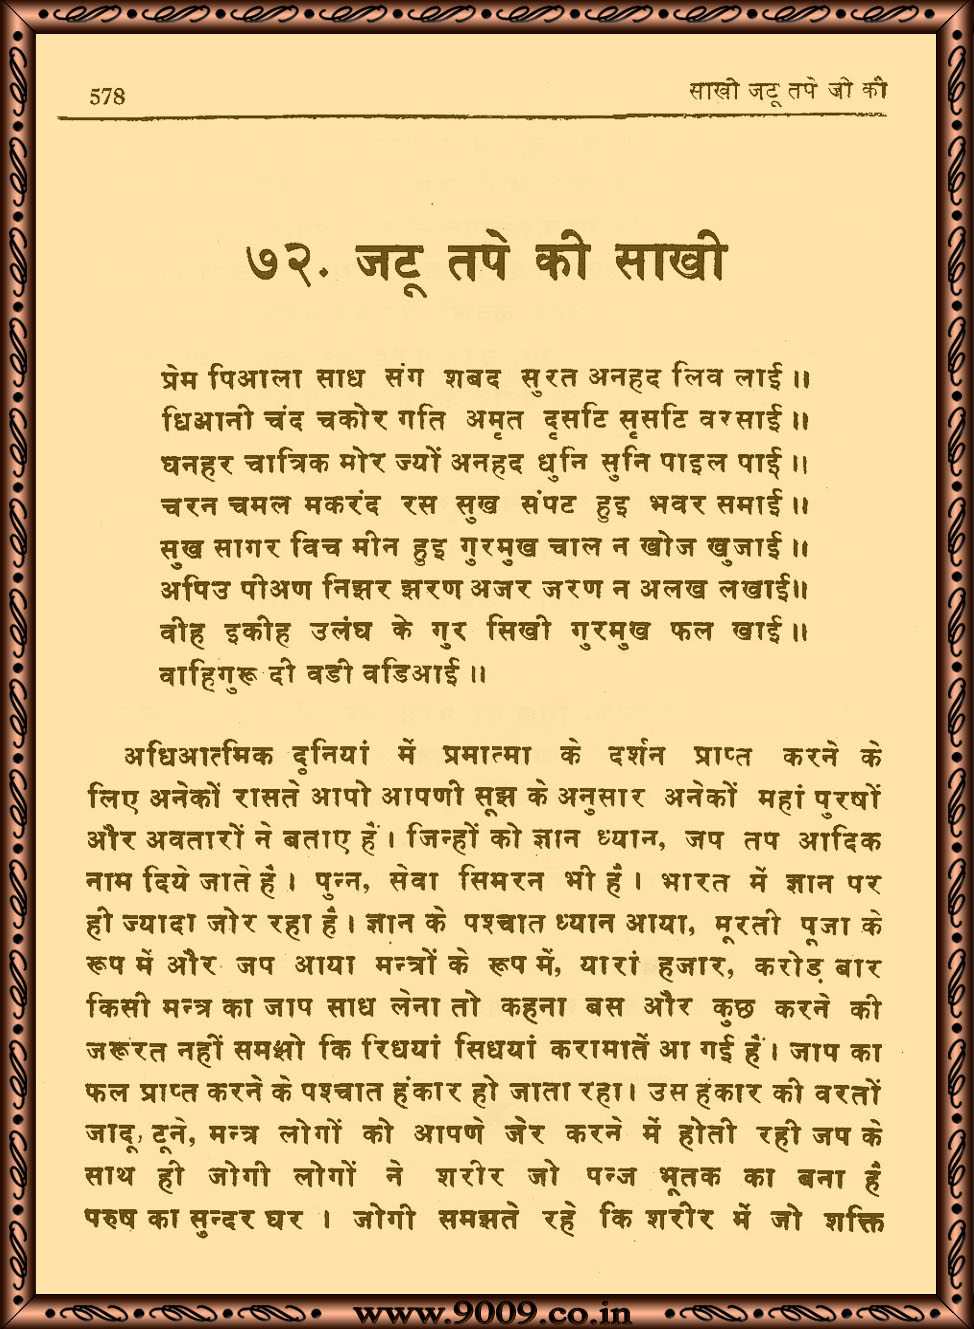 578
साखी जटू तपे जी की
७२. जटू तपे की साखी
प्रेम पिआला साध संग शबद सुरत अनहद लिव लाई ॥
धिआनी चंद चकोर गति अमृत दृसटि सृसटि वरसाई ॥
घनहर चात्रिक मोर ज्यों अनहद धुनि सुनि पाइल पाई ॥
चरन चमल मकरंद रस सुख संपट हुइ भवर समाई ॥
सुख सागर विच मीन हुइ गुरमुख चाल न खोज खुजाई ॥
अपिउ पीअण निझर झरण अजर जरण न अलख लखाई॥
वीह इकीह उलंघ के गुर सिखी गुरमुख फल खाई ॥
वाहिगुरू दी वडी वडिआई ॥
अधिआत्मिक दुनियां में प्रमात्मा के दर्शन प्राप्त करने के
लिए अनेकों रासते आपो आपणी सूझ के अनुसार अनेकों महां पुरषों
और अवतारों ने बताए हैं । जिन्हों को ज्ञान ध्यान, जप तप आदिक
नाम दिये जाते हैं । पुन्न, सेवा सिमरन भी हैं । भारत में ज्ञान पर
ही ज्यादा जोर रहा है । ज्ञान के पश्चात ध्यान आया, मूरती पूजा के
रूप में और जप आया मन्त्रों के रूप में, यारां हजार, करोड़ बार
किसी मन्त्र का जाप साध लेना तो कहना बस और कुछ करने की
जरूरत नहीं समझो कि रिधयां सिधयां करामातें आ गई हैं । जाप का
फल प्राप्त करने के पश्चात हंकार हो जाता रहा । उस हंकार की वरतों
जादू, टूने, मन्त्र लोगों को आपणे जेर करने में होती रही जप के
साथ ही जोगी लोगों ने शरीर जो पन्ज भूतक का बना है
परुष का सुन्दर घर । जोगी समझते रहे कि शरीर में जो शक्ति
www.9009.co.in